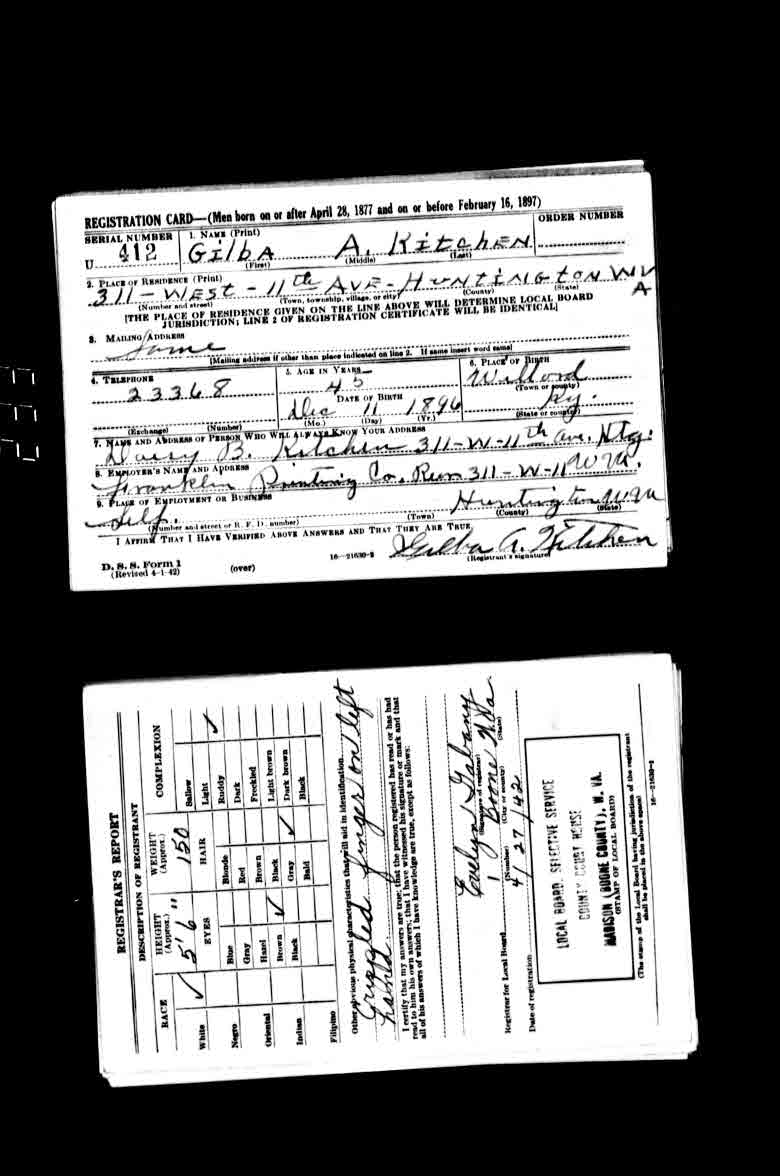 REGISTRATION CARD—(Men born on or after April 28, 1877 and on or before February 16, 1897)
SERIAL NUMBER
1. NAME (Print)
ORDER NUMBER
U 412
GilbA A. KitcHEN
(First) (Middle) (Last)
2. PLACE OF RESIDENCE (Print)
311 - WEST - 11th AVE - HUNTINGTON WVA
(Number and street) (Town, township, village, or city) (County) (State)
[THE PLACE OF RESIDENCE GIVEN ON THE LINE ABOVE WILL DETERMINE LOCAL BOARD
JURISDICTION; LINE 2 OF REGISTRATION CERTIFICATE WILL BE IDENTICAL]
3. MAILING ADDRESS
Same
[Mailing address if other than place indicated on line 2. If same insert word same]
4. TELEPHONE
5. AGE IN YEARS
6. PLACE OF BIRTH
23368
45
Willard
(Town or county)
DATE OF BIRTH
Dec 11 1896
Ky.
(Exchange) (Number)
(Mo.) (Day) (Yr.)
(State or country)
7. NAME AND ADDRESS OF PERSON WHO WILL ALWAYS KNOW YOUR ADDRESS
Daisy B. Kitchen 311-W-11th ave. Htg.
8. EMPLOYER'S NAME AND ADDRESS
Franklin Printing Co. Rear 311-W-11
9. PLACE OF EMPLOYMENT OR BUSINESS
Self. Huntington
(Number and street or R. F. D. number) (Town) (County) (State)
I AFFIRM THAT I HAVE VERIFIED ABOVE ANSWERS AND THAT THEY ARE TRUE.
Gilba A. Kitchen
D. S. S. Form 1
(Revised 4-1-42)
(over)
16—21630-2
(Registrant's signature)
REGISTRAR'S REPORT
DESCRIPTION OF REGISTRANT
RACE
HEIGHT (Approx.)
WEIGHT (Approx.)
COMPLEXION
5' 6"
150
EYES
HAIR
White ✓
Negro
Oriental
Indian
Filipino
Blue
Gray
Hazel
Brown ✓
Black
Blonde
Red
Brown
Black
Gray ✓
Bald
Sallow
Light
Ruddy ✓
Dark
Freckled
Light brown
Dark brown
Black
Other obvious physical characteristics that will aid in identification
finger on left
hand
I certify that my answers are true; that the person registered has read or has had
read to him his own answers; that I have witnessed his signature or mark and that
all of his answers of which I have knowledge are true, except as follows:
Evelyn
(Signature of registrar)
Registrar for Local Board 1 Boone W.Va
(Number) (City or county) (State)
Date of registration 4/27/42
LOCAL BOARD, SELECTIVE SERVICE
COUNTY COURT HOUSE
MADISON (BOONE COUNTY), W. VA.
(STAMP OF LOCAL BOARD)
(The stamp of the Local Board having jurisdiction of the registrant
shall be placed in the above space)
16—21630-1